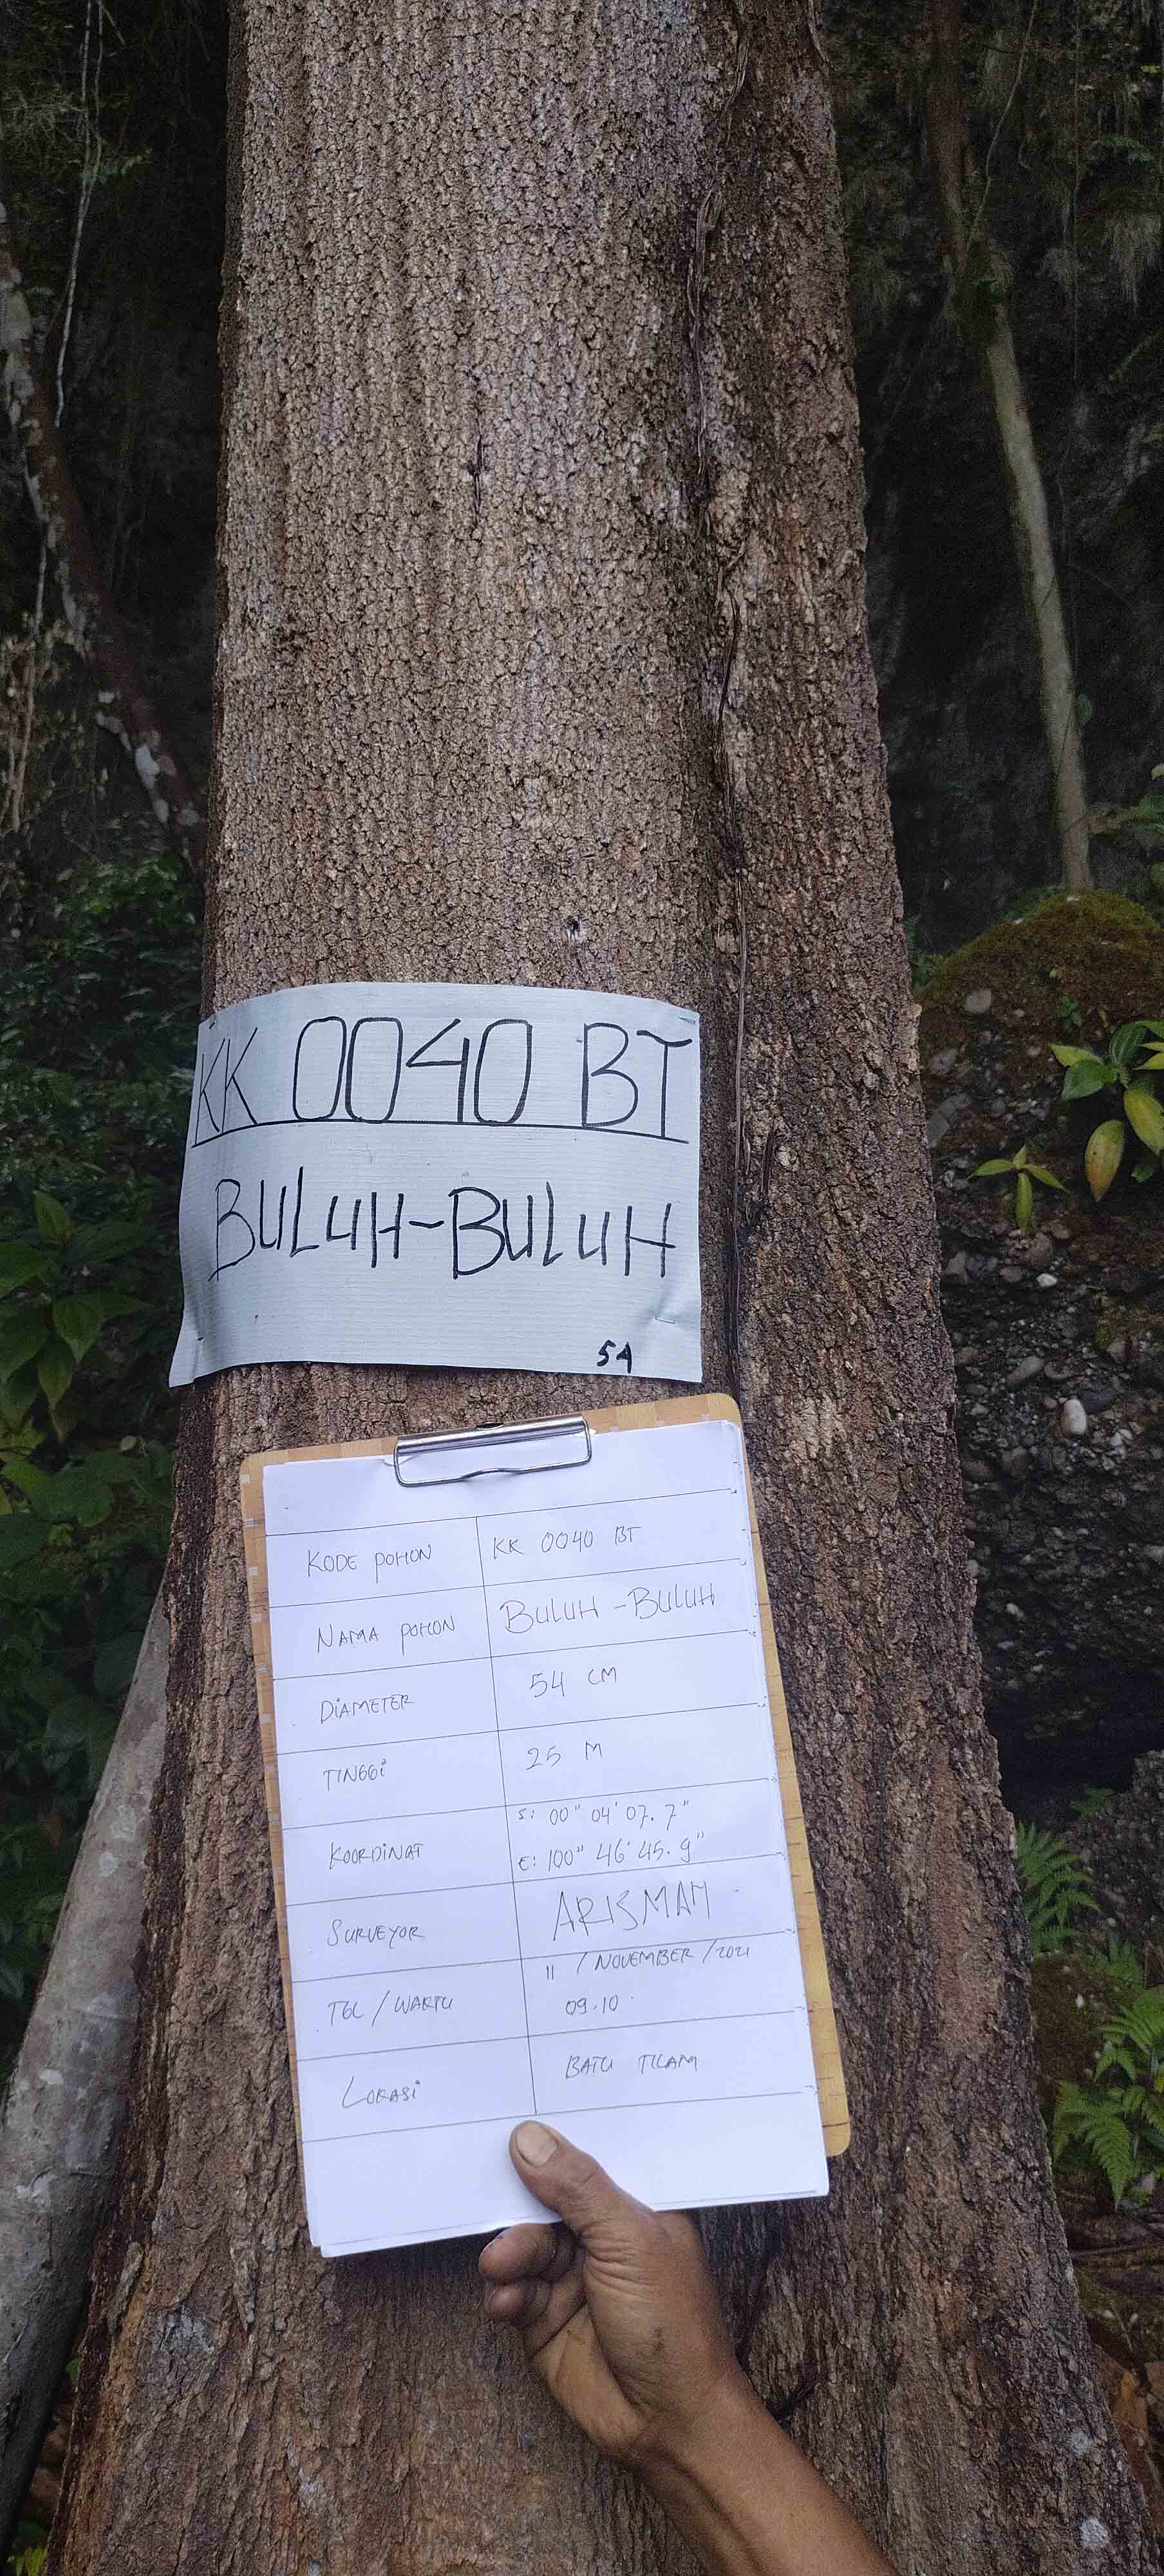 KK 0040 BT
BULUH-BULUH
54
KODE POHON KK 0040 BT
NAMA POHON BULUH-BULUH
DIAMETER 54 CM
TINGGI 25 M
KOORDINAT S: 00" 04' 07.7"
E: 100" 46' 45.9"
SURVEYOR ARISMAN
TGL / WAKTU 11 / NOVEMBER / 2021
09.10
LOKASI BATU TILAM